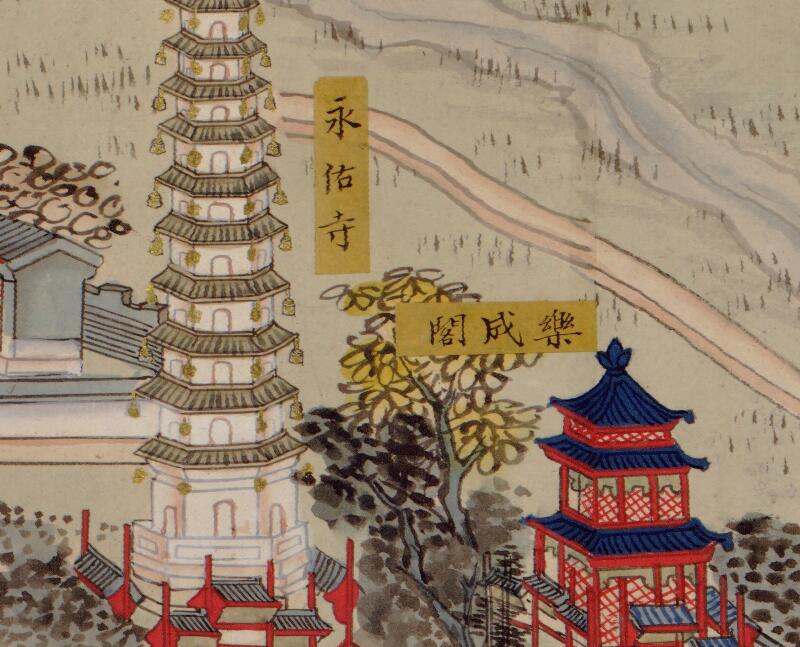 永佑寺
樂成閣